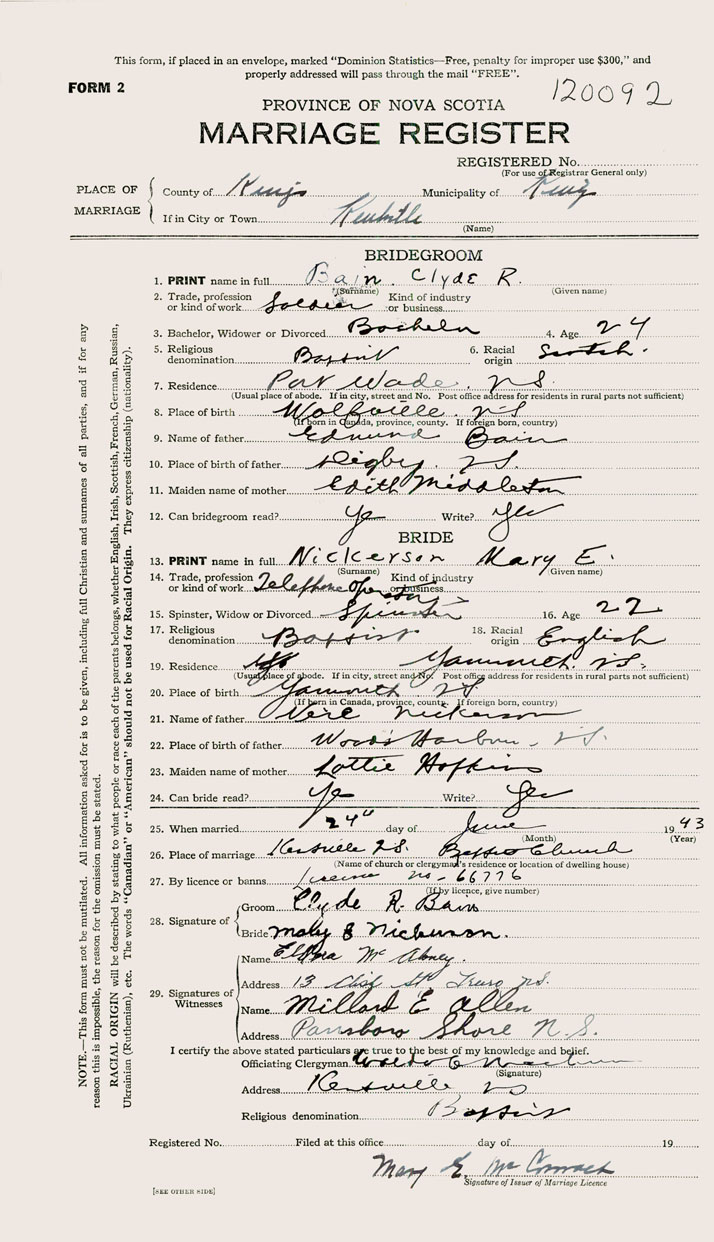 This form, if placed in an envelope, marked "Dominion Statistics—Free, penalty for improper use $300," and
properly addressed will pass through the mail "FREE".
FORM 2
120092
PROVINCE OF NOVA SCOTIA
MARRIAGE REGISTER
REGISTERED No.
(For use of Registrar General only)
PLACE OF MARRIAGE
County of Kings Municipality of Kings
If in City or Town Kentville
(Name)
BRIDEGROOM
1. PRINT name in full Bain Clyde R.
(Surname) (Given name)
2. Trade, profession or kind of work Soldier Kind of industry or business
3. Bachelor, Widower or Divorced Bachelor 4. Age 24
5. Religious denomination Baptist 6. Racial origin Scotch.
7. Residence Port Wade. NS.
(Usual place of abode. If in city, street and No. Post office address for residents in rural parts not sufficient)
8. Place of birth Wolfville. NS
(If born in Canada, province, county. If foreign born, country)
9. Name of father Edmund Bain
10. Place of birth of father Digby. NS.
11. Maiden name of mother Edith Middleton
12. Can bridegroom read? Yes Write? Yes
BRIDE
13. PRINT name in full Nickerson Mary E.
(Surname) (Given name)
14. Trade, profession or kind of work Telephone Operator Kind of industry or business
15. Spinster, Widow or Divorced Spinster 16. Age 22
17. Religious denomination Baptist 18. Racial origin English
19. Residence Yarmouth. NS.
(Usual place of abode. If in city, street and No. Post office address for residents in rural parts not sufficient)
20. Place of birth Yarmouth NS
(If born in Canada, province, county. If foreign born, country)
21. Name of father Vere Nickerson
22. Place of birth of father Woods Harbour - NS.
23. Maiden name of mother Lottie Hopkins
24. Can bride read? Yes Write? Yes
25. When married 24" day of June 1943
(Month) (Year)
26. Place of marriage Kentville NS. Baptist Church
(Name of church or clergyman's residence or location of dwelling house)
27. By licence or banns licence no - 66776
(If by licence, give number)
28. Signature of
Groom Clyde R. Bain
Bride Mary E Nickerson.
29. Signatures of Witnesses
Name
Address 13 St Truro N.S.
Name Millard E Allen
Address Parrsboro Shore N.S.
I certify the above stated particulars are true to the best of my knowledge and belief.
Officiating Clergyman
(Signature)
Address Kentville NS
Religious denomination Baptist
Registered No. Filed at this office day of 19
Mary E. McCormack
Signature of Issuer of Marriage Licence
[SEE OTHER SIDE]
NOTE.—This form must not be mutilated. All information asked for is to be given, including full Christian and surnames of all parties, and if for any
reason this is impossible, the reason for the omission must be stated.
RACIAL ORIGIN will be described by stating to what people or race each of the parents belongs, whether English, Irish, Scottish, French, German, Russian,
Ukrainian (Ruthenian), etc. The words "Canadian" or "American" should not be used for Racial Origin. They express citizenship (nationality).